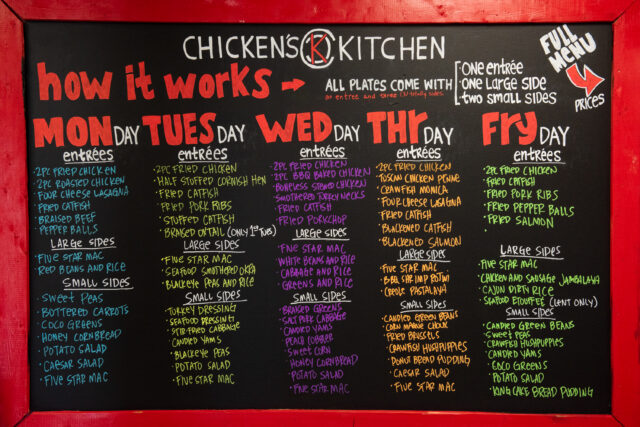 CHICKEN'S CK KITCHEN
FULL MENU
PRICES
how it works
ALL PLATES COME WITH
an entree and three (3) totally sides.
ONE ENTRÉE
ONE LARGE SIDE
TWO SMALL SIDES
MONDAY
entrées
2PC FRIED CHICKEN
2PC ROASTED CHICKEN
FOUR CHEESE LASAGNA
FRIED CATFISH
BRAISED BEEF
PEPPER BALLS
LARGE SIDES
FIVE STAR MAC
RED BEANS AND RICE
SMALL SIDES
SWEET PEAS
BUTTERED CARROTS
COCO GREENS
HONEY CORNBREAD
POTATO SALAD
CAESAR SALAD
FIVE STAR MAC
TUESDAY
entrées
2PC FRIED CHICKEN
HALF STUFFED CORNISH HEN
FRIED CATFISH
FRIED PORK RIBS
STUFFED CATFISH
BRAISED OXTAIL (ONLY 1ST TUES)
LARGE SIDES
FIVE STAR MAC
SEAFOOD SMOTHERED OKRA
BLACKEYE PEAS AND RICE
SMALL SIDES
TURKEY DRESSING
SEAFOOD DRESSING
STIR FRIED CABBAGE
CANDIED YAMS
BLACKEYE PEAS
POTATO SALAD
FIVE STAR MAC
WEDDAY
entrées
2PC FRIED CHICKEN
2PC BBQ BAKED CHICKEN
BONELESS STEWED CHICKEN
SMOTHERED TURKEY NECKS
FRIED CATFISH
FRIED PORKCHOP
LARGE SIDES
FIVE STAR MAC
WHITE BEANS AND RICE
CABBAGE AND RICE
GREENS AND RICE
SMALL SIDES
BRAISED GREENS
SALT PORK CABBAGE
CANDIED YAMS
PEACH COBBLER
SWEET CORN
HONEY CORNBREAD
POTATO SALAD
FIVE STAR MAC
THRDAY
entrées
2PC FRIED CHICKEN
TUSCAN CHICKEN PENNE
CRAWFISH MONICA
FOUR CHEESE LASAGNA
FRIED CATFISH
BLACKENED CATFISH
BLACKENED SALMON
LARGE SIDES
FIVE STAR MAC
BBQ SHRIMP ROTINI
CREOLE PASTALAYA
SMALL SIDES
CANDIED GREEN BEANS
CORN MAQUE CHOUX
FRIED BRUSSELS
CRAWFISH HUSHPUPPIES
DONUT BREAD PUDDING
CAESAR SALAD
FIVE STAR MAC
FRYDAY
entrées
2PC FRIED CHICKEN
FRIED CATFISH
FRIED PORK RIBS
FRIED PEPPER BALLS
FRIED SALMON
LARGE SIDES
FIVE STAR MAC
CHICKEN AND SAUSAGE JAMBALAYA
CAJUN DIRTY RICE
SEAFOOD ETOUFFEE (LENT ONLY)
SMALL SIDES
CANDIED GREEN BEANS
SWEET PEAS
CRAWFISH HUSHPUPPIES
CANDIED YAMS
COCO GREENS
POTATO SALAD
KING CAKE BREAD PUDDING